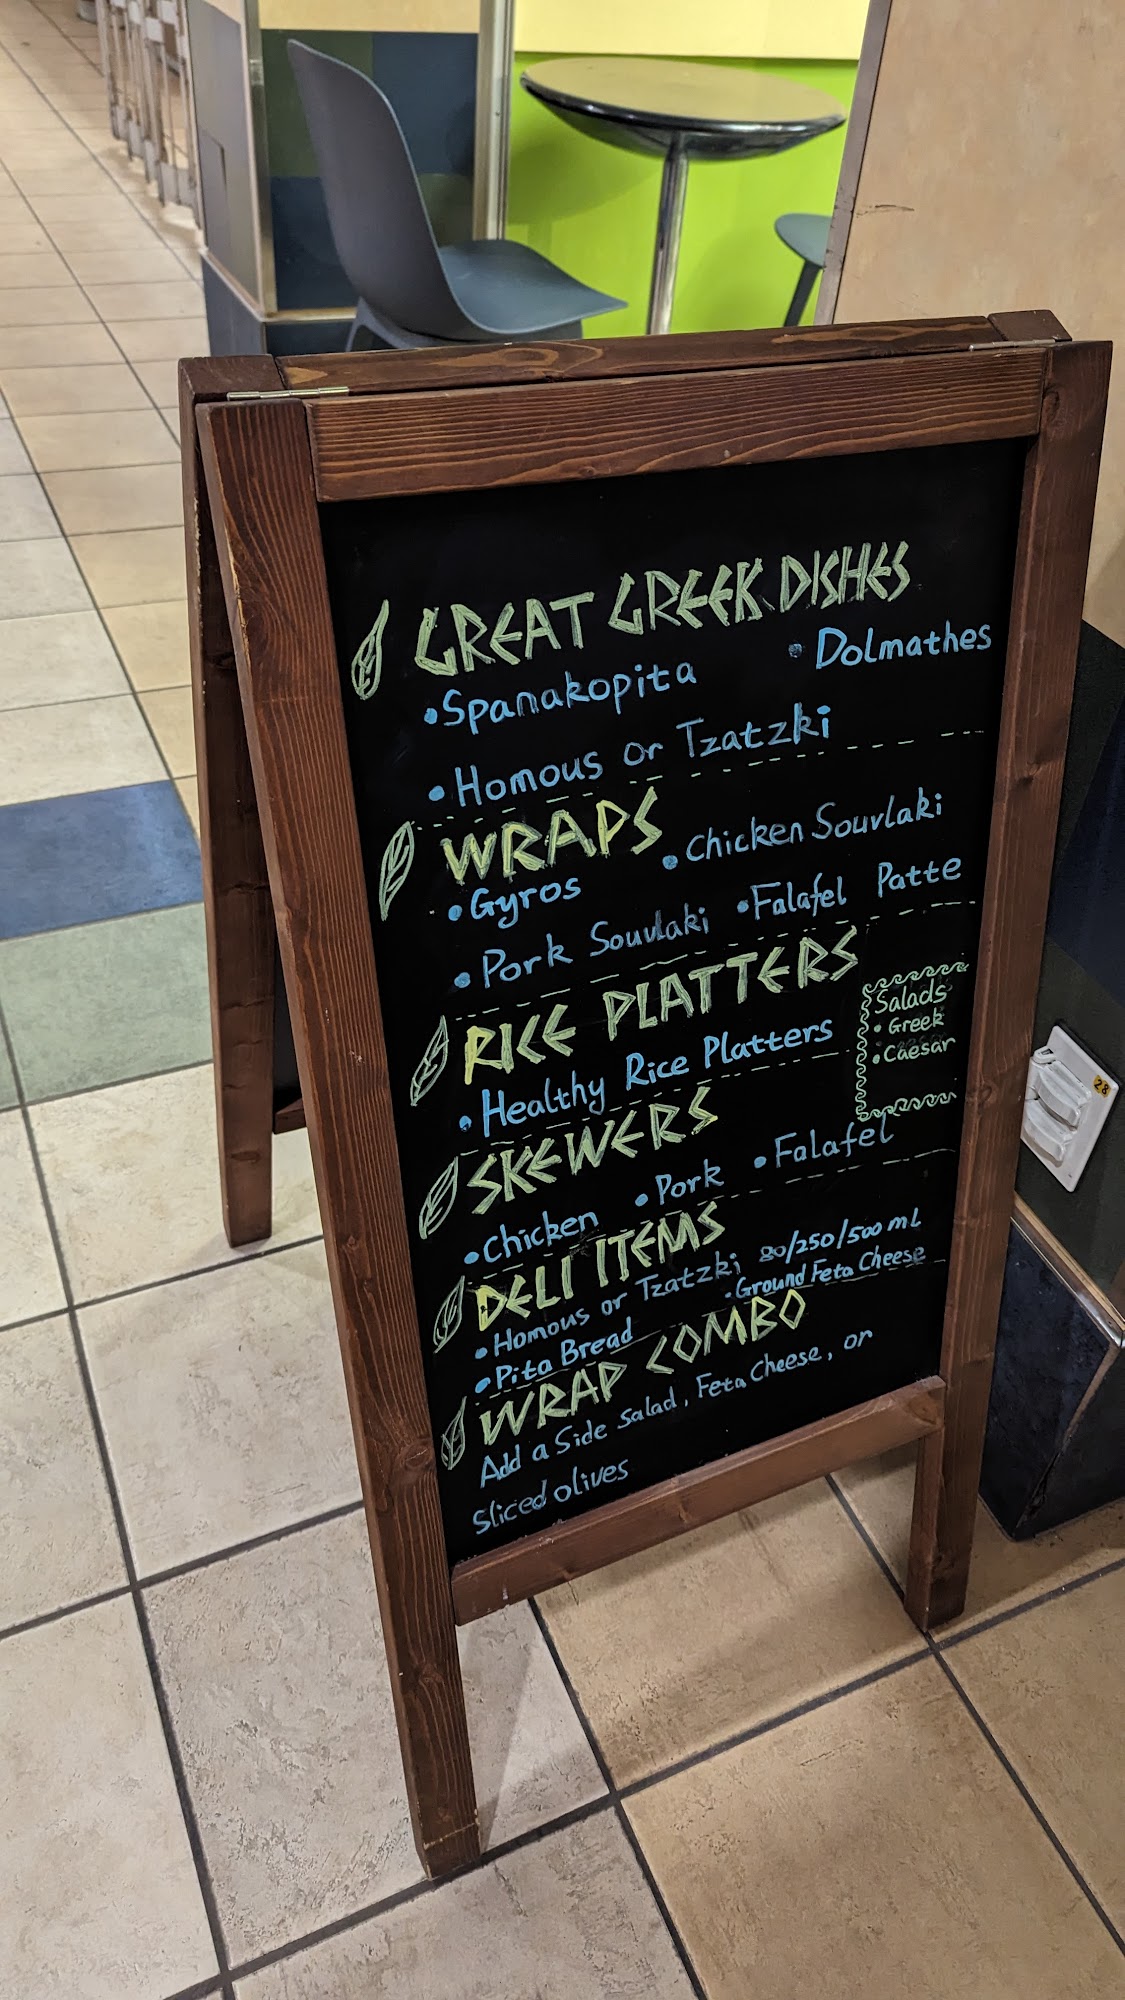 GREAT GREEK DISHES
• Spanakopita • Dolmathes
• Homous or Tzatzki
WRAPS
• Gyros • Chicken Souvlaki
• Pork Souvlaki • Falafel Patte
RICE PLATTERS
• Healthy Rice Platters
Salads
• Greek
• Caesar
SKEWERS
• Chicken • Pork • Falafel
DELI ITEMS
• Homous or Tzatzki 80/250/500 mL
• Pita Bread • Ground Feta Cheese
WRAP COMBO
Add a Side Salad, Feta Cheese, or
Sliced olives
28